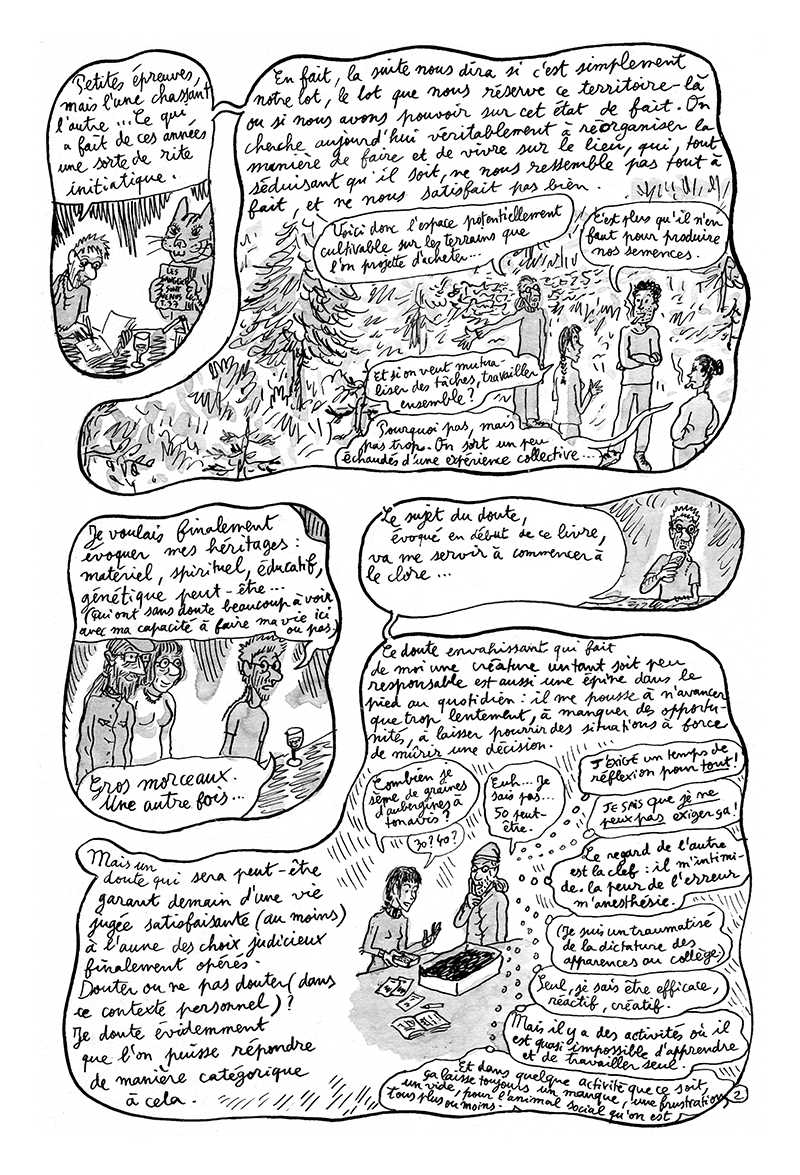 Petites épreuves,
mais l'une chassant
l'autre ... Ce qui
a fait de ces années
une sorte de rite
initiatique.
LES
SONT
En fait, la suite nous dira si c'est simplement
notre lot, le lot que nous réserve ce territoire-là
ou si nous avons pouvoir sur cet état de fait. On
cherche aujourd'hui véritablement à réorganiser la
manière de faire et de vivre sur le lieu, qui, tout
séduisant qu'il soit, ne nous ressemble pas tout à
fait et ne nous satisfait pas bien.
Voici donc l'espace potentiellement
cultivable sur les terrains que
l'on projette d'acheter...
C'est plus qu'il n'en
faut pour produire
nos semences.
Et si on veut mutua-
liser des tâches, travailler
ensemble ?
Pourquoi pas, mais
pas trop. On sort un peu
échaudés d'une expérience collective...
Je voulais finalement
évoquer mes héritages :
matériel, spirituel, éducatif,
génétique peut-être...
(qui ont sans doute beaucoup à voir
avec ma capacité à faire ma vie ici
ou pas)
Gros morceaux.
Une autre fois...
Le sujet du doute,
évoqué en début de ce livre,
va me servir à commencer à
le clore ...
Ce doute envahissant qui fait
de moi une créature un tant soit peu
responsable est aussi une épine dans le
pied au quotidien : il me pousse à n'avancer
que trop lentement, à manquer des opportu-
nités, à laisser pourrir des situations à force
de mûrir une décision.
Combien je
sème de graines
d'aubergines à
ton avis ?
30 ? 40 ?
Euh... Je
sais pas...
50 peut-
être.
J'EXIGE un temps de
réflexion pour tout !
JE SAIS que je ne
peux pas exiger ça !
Le regard de l'autre
est la clef : il m'intimi-
de. La peur de l'erreur
m'anesthésie.
(Je suis un traumatisé
de la dictature des
apparences au collège)
Seul, je sais être efficace,
réactif, créatif.
Mais il y a des activités où il
est quasi-impossible d'apprendre
et de travailler seul.
Et dans quelque activité que ce soit,
ça laisse toujours un manque, une frustration,
un vide, pour l'animal social qu'on est,
tous plus ou moins.
Mais un
doute qui sera peut-être
garant demain d'une vie
jugée satisfaisante (au moins)
à l'aune des choix judicieux
finalement opérés.
Douter ou ne pas douter (dans
ce contexte personnel) ?
Je doute évidemment
que l'on puisse répondre
de manière catégorique
à cela.
2